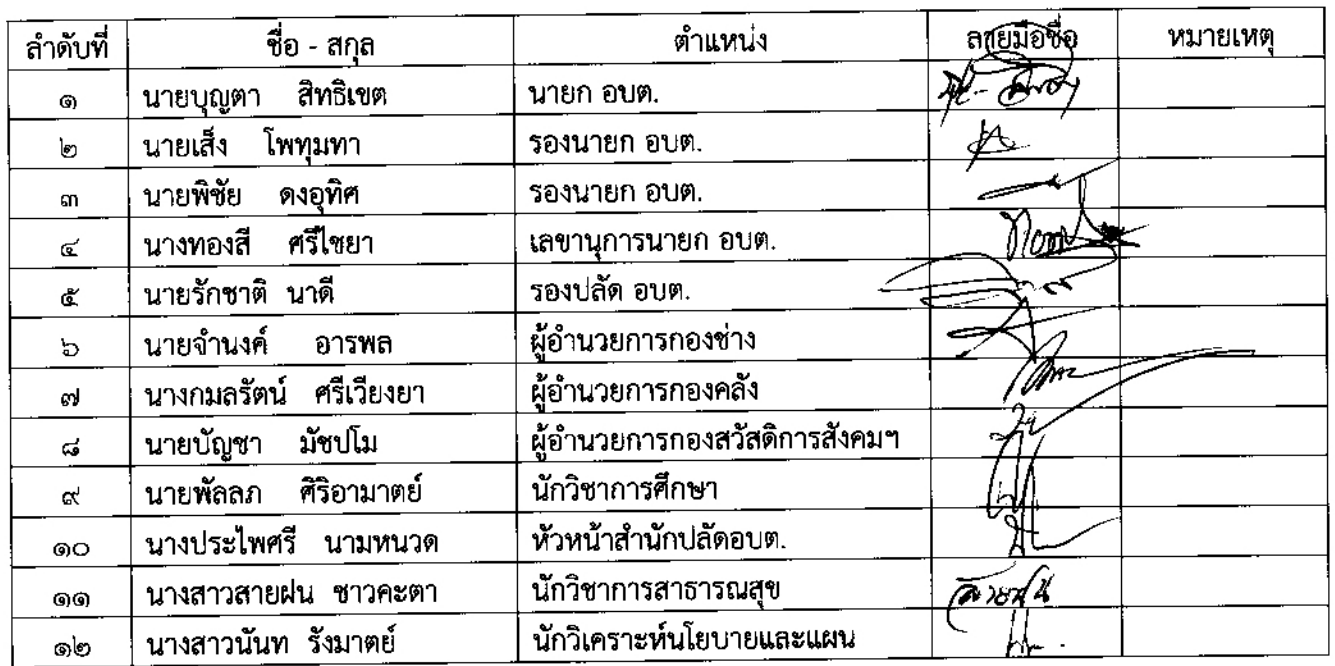 ลำดับที่ ชื่อ - สกุล ตำแหน่ง ลายมือชื่อ หมายเหตุ
๑ นายบุญตา สิทธิเขต นายก อบต.
๒ นายเส็ง โพทุมทา รองนายก อบต.
๓ นายพิชัย ดงอุทิศ รองนายก อบต.
๔ นางทองสี ศรีไชยา เลขานุการนายก อบต.
๕ นายรักชาติ นาดี รองปลัด อบต.
๖ นายจำนงค์ อารพล ผู้อำนวยการกองช่าง
๗ นางกมลรัตน์ ศรีเวียงยา ผู้อำนวยการกองคลัง
๘ นายบัญชา มัชปโม ผู้อำนวยการกองสวัสดิการสังคมฯ
๙ นายพัลลภ ศิริอามาตย์ นักวิชาการศึกษา
๑๐ นางประไพศรี นามหนวด หัวหน้าสำนักปลัดอบต.
๑๑ นางสาวสายฝน ชาวคะตา นักวิชาการสาธารณสุข สายฝน
๑๒ นางสาวนันท รังมาตย์ นักวิเคราะห์นโยบายและแผน